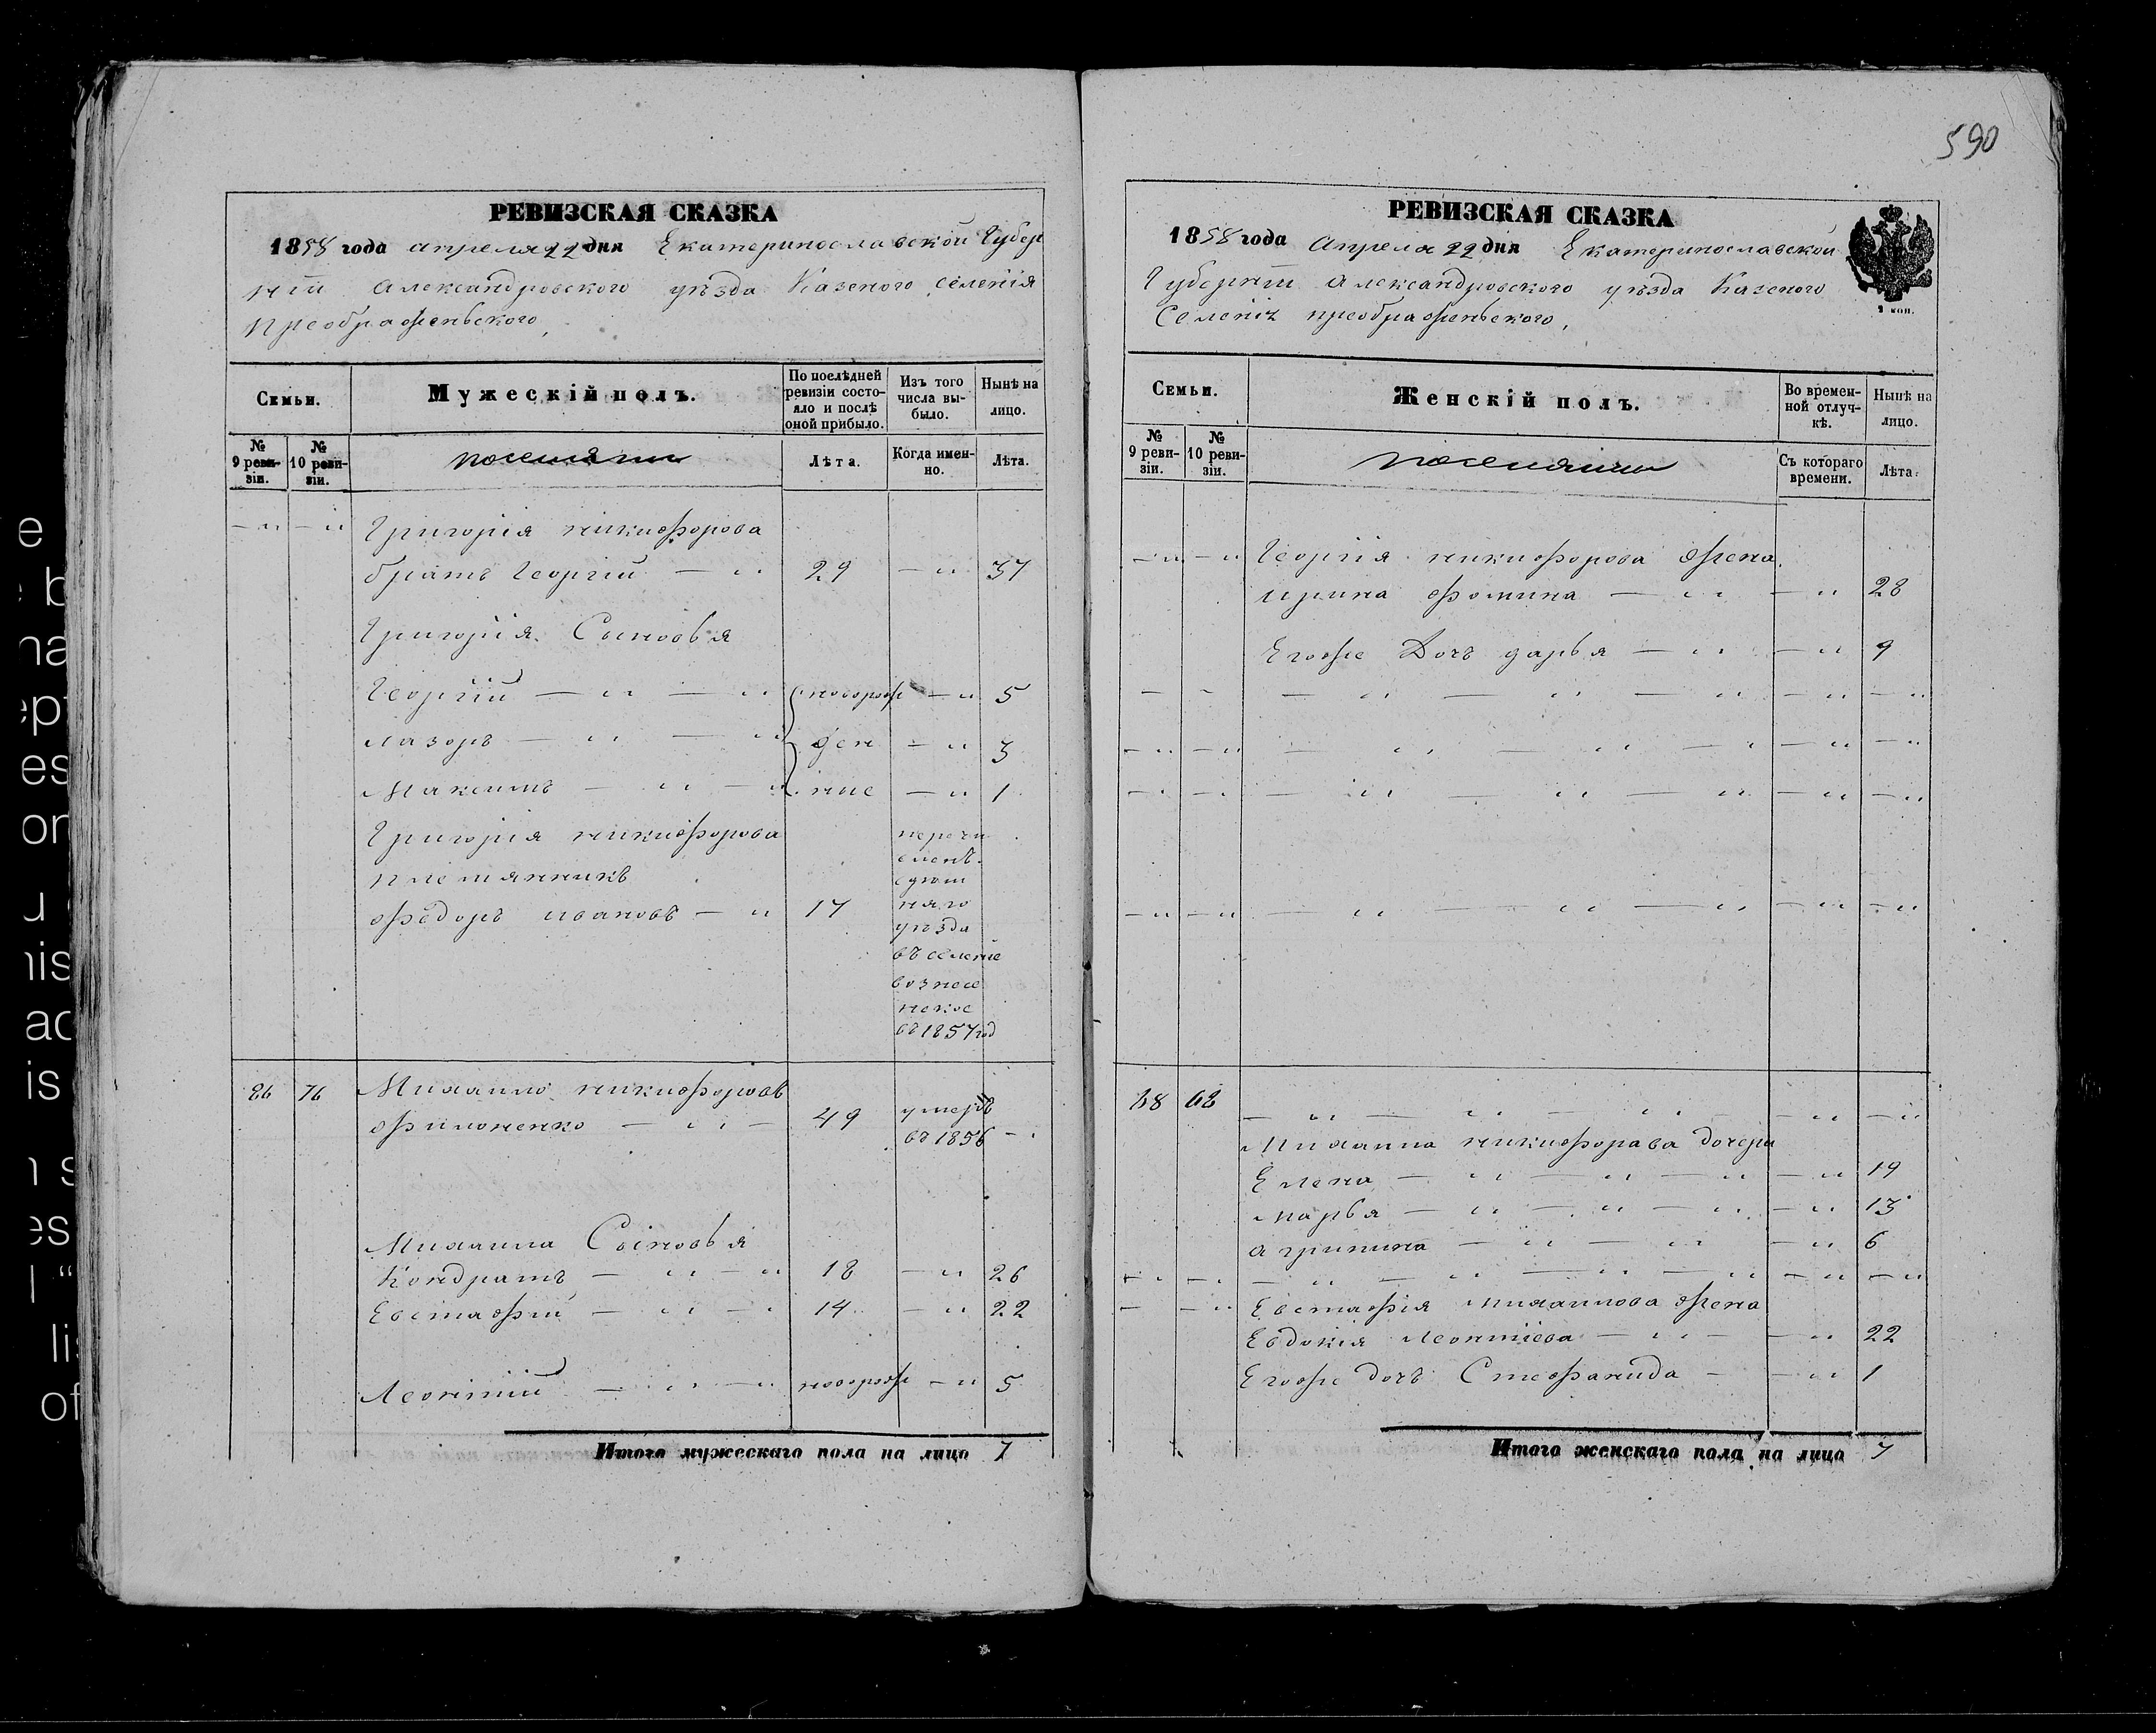 590
РЕВИЗСКАЯ СКАЗКА
1858 года апреля 22 дня Екатеринославской Губер
нiи Александровского уѣзда Казеного селенiя
преображеньского,
Семьи.
Мужескiй полъ.
По послѣдней ревизiи состояло и послѣ оной прибыло.
Изъ того числа выбыло.
Нынѣ на лицо.
№ 9 ревизiи.
№ 10 ревизiи.
поселяни
Лѣта.
Когда именно.
Лѣта.
— " — " Григорiя никифорова
братъ Георгiй — " 29 — " 37
Григорiя Сыновья
Георгiй — " — " новорож — " 5
лазоръ — " — " ден — " 3
Максимъ — " — " ние — " 1
Григорiя никифорова
племянникъ
федоръ ивановъ — " 17
перечи
сленъ
сдеш
няго
уѣзда
въ селенiе
вознесе
нское
въ 1857 год
86 76 Михаило никифоровъ
филоненко — " — 49
умеръ
въ 1856 —
Михаила Сыновья
Кондратъ — " — " 18 — " 26
Евстафiй — " — " 14 — " 22
Леонтiй — " — " новорож — " 5
Итого мужескаго пола на лицо 7
РЕВИЗСКАЯ СКАЗКА
1858 года Апреля 22 дня Екатеринославской
Губернiи Александровского уѣзда Казеного
Селенiя преображеньского,
2 коп.
Семьи.
Женскiй полъ.
Во временной отлучкѣ.
Нынѣ на лицо.
№ 9 ревизiи.
№ 10 ревизiи.
поселянки
Съ котораго времени.
Лѣта.
— " — " Георгiя никифорова жена
ирина фомина — " — " 28
Егоже Дочъ дарья — " — " 9
— " — " — " — " — " — " — "
— " — " — " — " — " — " — "
— " — " — " — " — " — " — "
— " — " — " — " — " — " — "
68 — " — " — " — " — "
Михаила никифорава дочери
Елена — " — " — " — " 19
марья — " — " — " — " 13
агрипина — " — " — " 6
— " — " — " — " — " — " — " — "
— — " Евстафiя михаилова жена
Евдокiя леонтiева — " — — " 22
Егоже дочъ Стефанида — — " 1
Итого женскаго пола на лицо 7